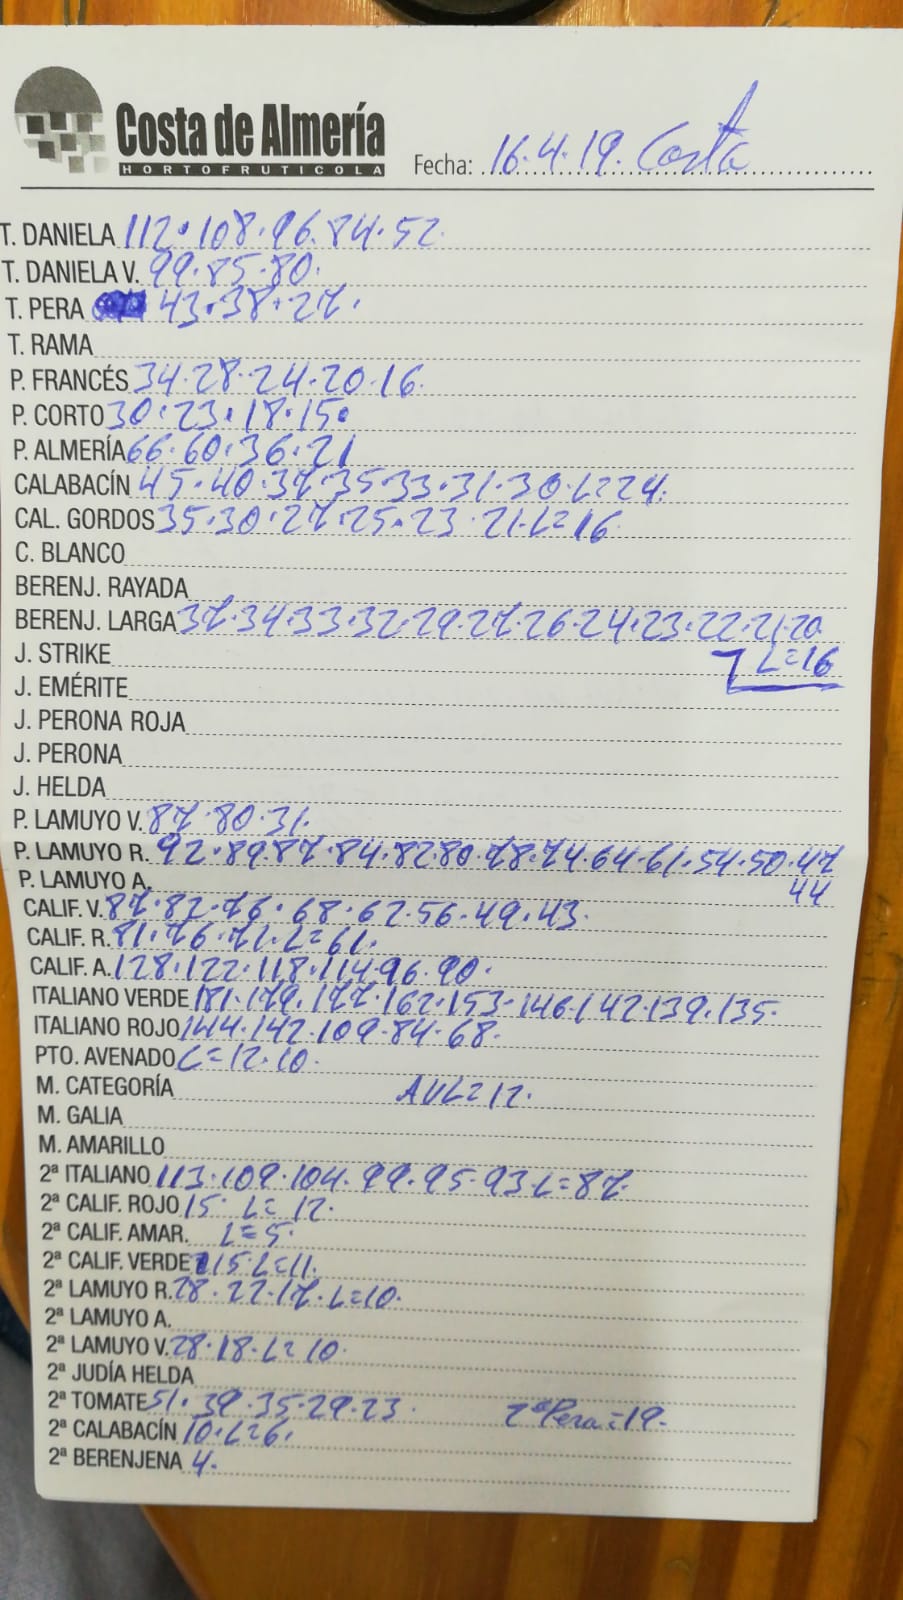 Costa de Almería
HORTOFRUTICOLA
Fecha: 16.4.19. Costa
T. DANIELA 112.108.96.84.52.
T. DANIELA V. 99.85.80.
T. PERA 43.38.27.
T. RAMA
P. FRANCÉS 34.28.24.20.16.
P. CORTO 30.23.18.15.
P. ALMERÍA 66.60.36.21
CALABACÍN 45.40.37.35.33.31.30.L=24.
CAL. GORDOS 35.30.27.25.23.21.L=16.
C. BLANCO
BERENJ. RAYADA
BERENJ. LARGA 37.34.33.32.29.27.26.24.23.22.21.20.
J. STRIKE L=16
J. EMÉRITE
J. PERONA ROJA
J. PERONA
J. HELDA
P. LAMUYO V. 87.80.31.
P. LAMUYO R. 92.89.87.84.82.80.78.74.64.61.54.50.47
P. LAMUYO A. 44
CALIF. V. 87.82.76.68.62.56.49.43.
CALIF. R. 81.76.71.L=61.
CALIF. A. 128.122.118.114.96.90.
ITALIANO VERDE 181.179.177.162.153.146.142.139.135.
ITALIANO ROJO 144.142.109.84.68.
PTO. AVENADO L=12.10.
M. CATEGORÍA AVL=12.
M. GALIA
M. AMARILLO
2ª ITALIANO 113.109.104.99.95.93.L=87.
2ª CALIF. ROJO 15. L=12.
2ª CALIF. AMAR. L=5.
2ª CALIF. VERDE 15.L=11.
2ª LAMUYO R. 28.22.17.L=10.
2ª LAMUYO A.
2ª LAMUYO V. 28.18.L=10.
2ª JUDÍA HELDA
2ª TOMATE 51.39.35.29.23. 2ª Pera=19.
2ª CALABACÍN 10.L=6.
2ª BERENJENA 4.